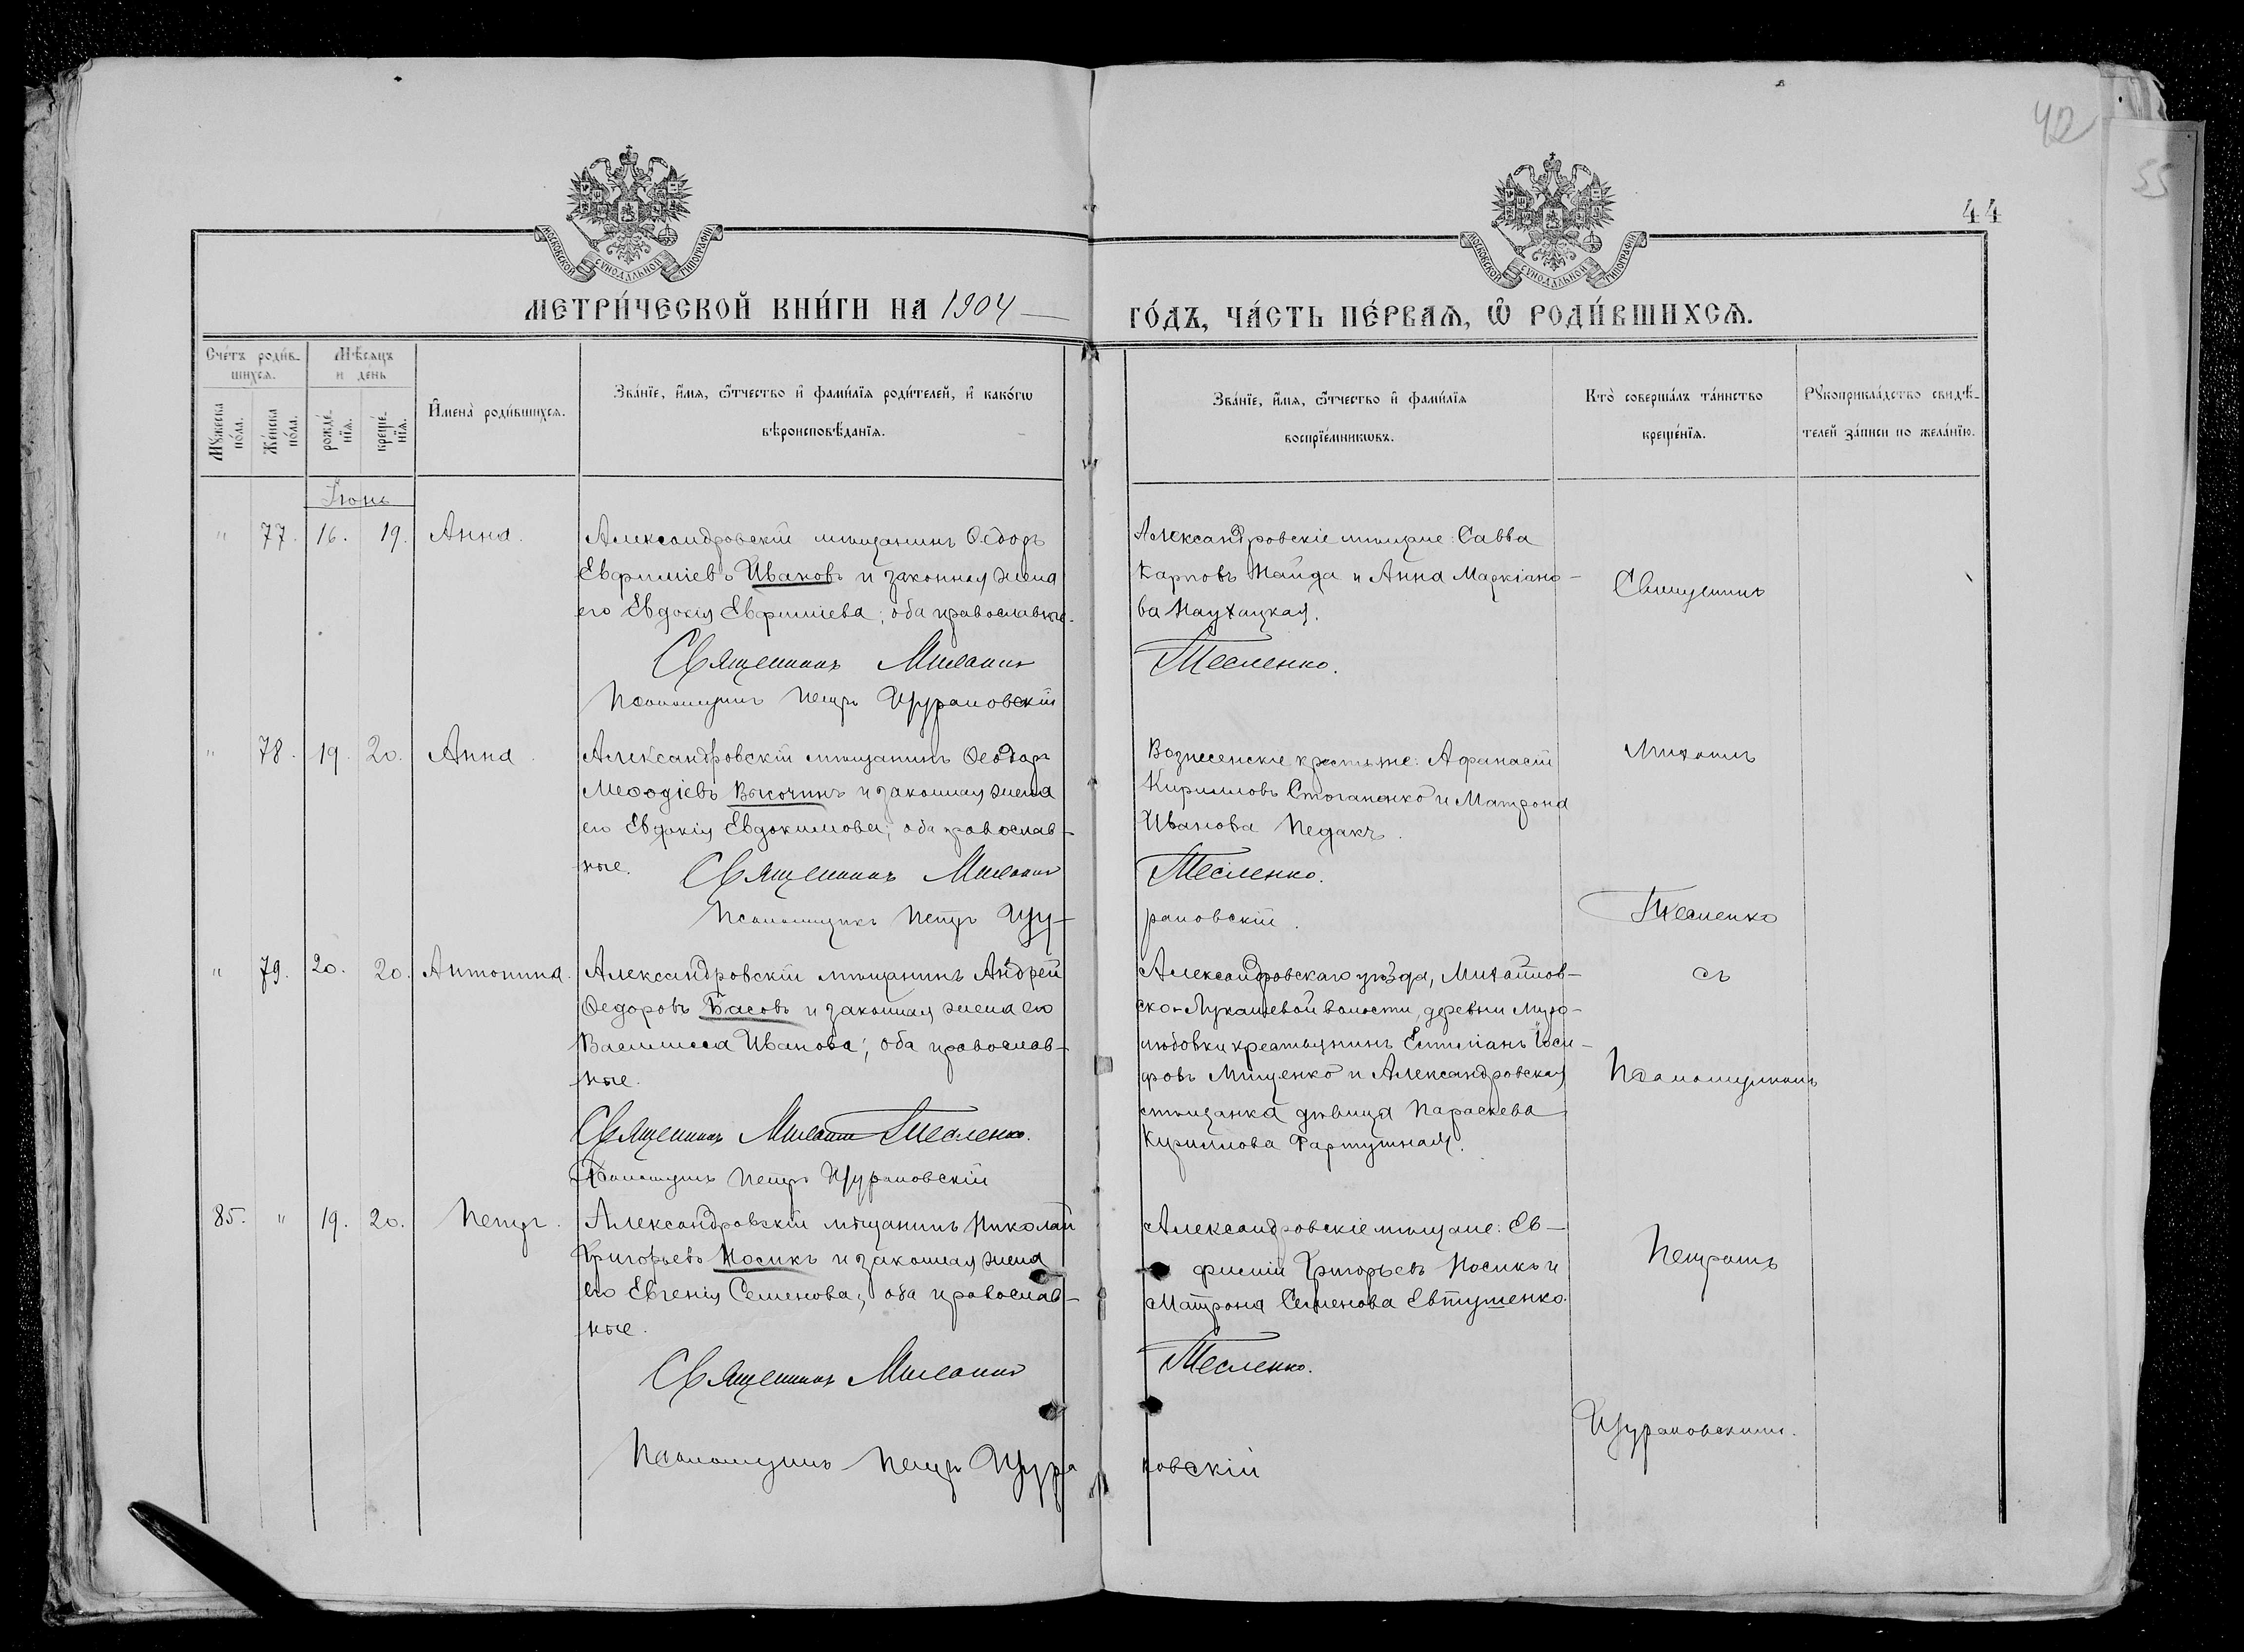 42
55
44
МОСКОВСКОЙ СѴНОДАЛЬНОЙ ТИПОГРАФІИ
МОСКОВСКОЙ СѴНОДАЛЬНОЙ ТИПОГРАФІИ
МЕТРИ́ЧЕСКОЙ КНИ́ГИ НА 1904
ГО́ДЪ, ЧА́СТЬ ПЕ́РВАѦ, Ѡ҆ РОДИ́ВШИХСѦ.
Сче́тъ роди́в-
шихсѧ.
Мѣ́сѧцъ
и день
Мꙋ́жеска
по́ла.
Же́нска
по́ла.
рожде́-
нїѧ.
креще́-
нїѧ.
И҆мена̀ роди́вшихсѧ.
Зва́нїе, и҆́мѧ, ѻ҆́тчество и҆ фами́лїѧ роди́телей, и҆ како́гѡ
вѣроисповѣ́данїѧ.
Зва́нїе, и҆́мѧ, ѻ҆́тчество и҆ фами́лїѧ
воспрїе́мникѡвъ.
Кто̀ соверша́лъ та́инство
креще́нїѧ.
Рꙋкоприкла́дство свидѣ́-
телей за́писи по жела́нїю.
Іюнь
" 77. 16. 19. Анна.
Александровскій мѣщанинъ Ѳедоръ
Евфиміевъ Ивановъ и законная жена
его Евдокія Евфиміева; оба православные.
Священникъ Михаилъ
Псаломщикъ Петръ Щурановскій
Александровскіе мѣщане: Савва
Карповъ Найда и Анна Маркіано-
ва
Тесленко.
Священникъ
" 78. 19. 20. Анна.
Александровскій мѣщанинъ Ѳеодоръ
Меѳодіевъ Височинъ и законная жена
его Евдокія Евдокимова; оба православ-
ные. Священникъ Михаилъ
Псаломщикъ Петръ Щу-
Вознесенскіе крестьяне: Афанасій
Кирилловъ Стогапенко и Матрона
Иванова Педакъ.
Тесленко.
рановскій.
Михаилъ
Тесленко
" 79. 20. 20. Антонина.
Александровскій мѣщанинъ Андрей
Ѳедоровъ Басовъ и законная жена его
Василиса Иванова; оба православ-
ные.
Священникъ Михаилъ Тесленко.
Псаломщикъ Петръ Щурановскій
Александровскаго уѣзда, Михайлов-
ско-Лукашевой волости, деревни Миро-
любовки крестьянинъ Емиліанъ Іоси-
фовъ Мищенко и Александровская
мѣщанка дѣвица Параскева
Кириллова Фартушная.
съ
Псаломщикомъ
85. " 19. 20. Петръ.
Александровскій мѣщанинъ Николай
Григорьевъ Носикъ и законная жена
его Евгенія Семенова; оба православ-
ные.
Священникъ Михаилъ
Псаломщикъ Петръ Щура
Александровскіе мѣщане: Ев-
фимій Григорьевъ Носикъ и
Матрона Семенова Евтушенко.
Тесленко.
новскій
Петромъ
Щурановскимъ.